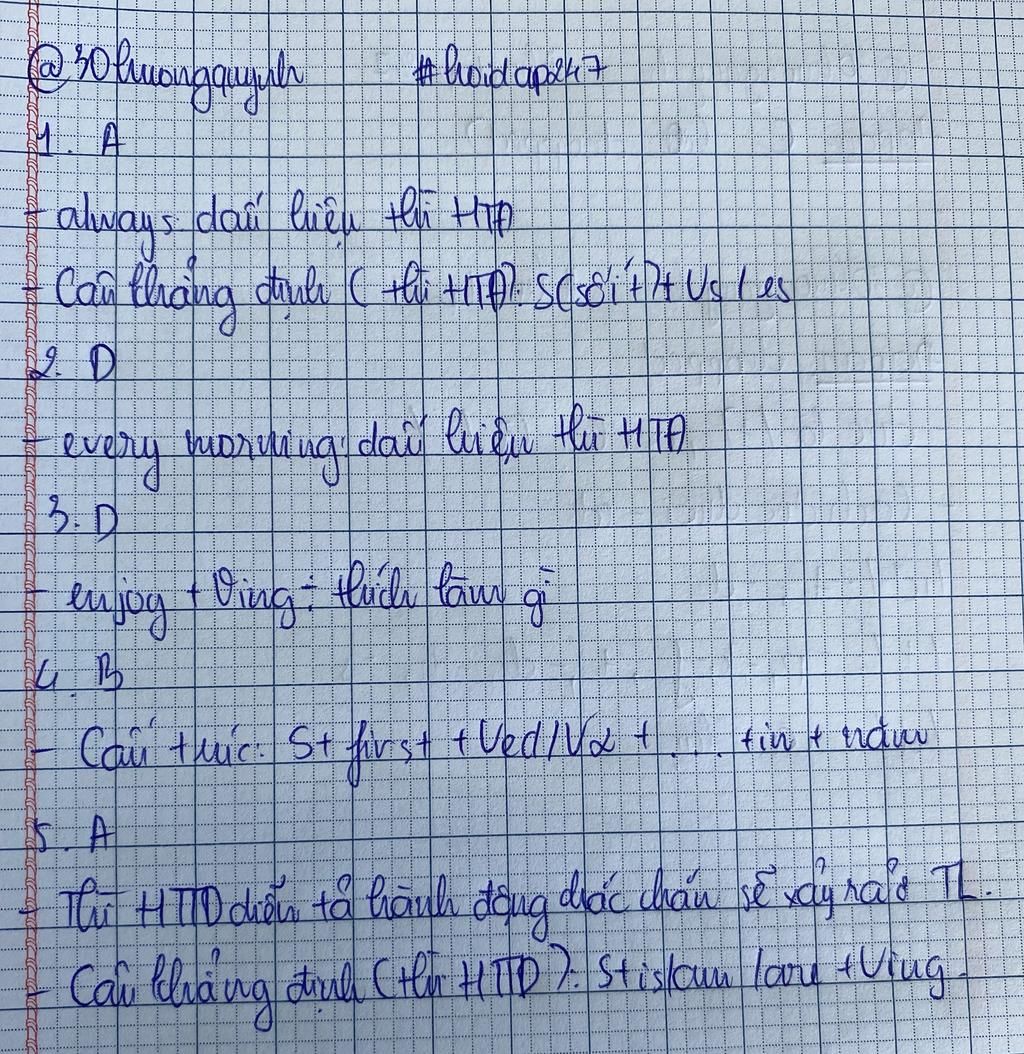 @30huongquynh #hoidap247
1. A
- always: dấu hiệu thì HTĐ
- Câu khẳng định (thì HTĐ): S(số ít) + Vs/es
2. D
- every morning: dấu hiệu thì HTĐ
3. D
- enjoy + Ving: thích làm gì
4. B
- Cấu trúc: S + first + Ved/V2 + ... + in + năm
5. A
- Thì HTTD diễn tả hành động chắc chắn sẽ xảy ra ở TL.
- Câu khẳng định (thì HTTD): S + is/am/are + Ving.